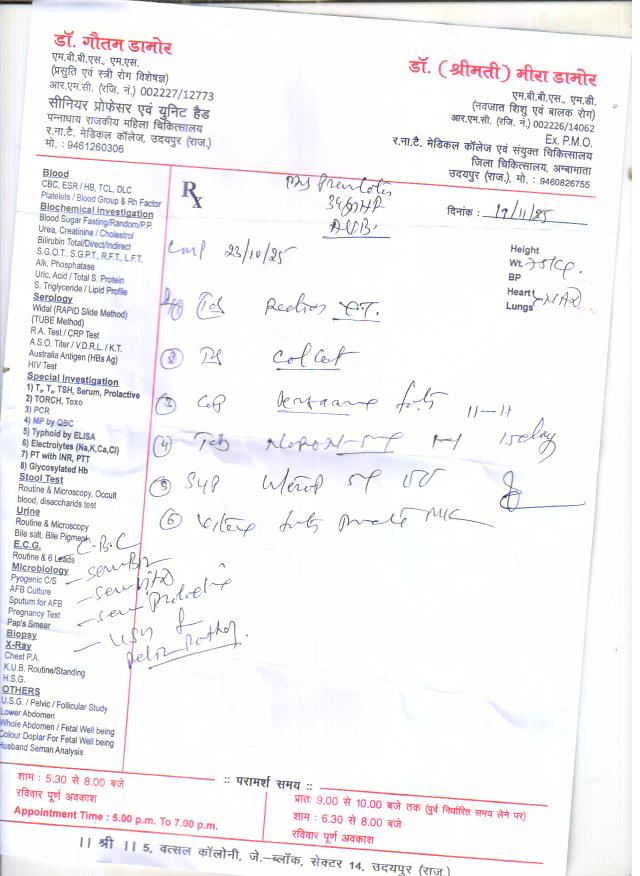 डॉ. गौतम डामोर
एम.बी.बी.एस., एम.एस.
(प्रसुति एवं स्त्री रोग विशेषज्ञ)
आर.एम.सी. (रजि. नं.) 002227/12773
सीनियर प्रोफेसर एवं युनिट हैड
पन्नाधाय राजकीय महिला चिकित्सालय
र.ना.टै. मेडिकल कॉलेज, उदयपुर (राज.)
मो. : 9461260306
डॉ. (श्रीमती) मीरा डामोर
एम.बी.बी.एस., एम.डी.
(नवजात शिशु एवं बालक रोग)
आर.एम.सी. (रजि. नं.) 002226/14062
Ex. P.M.O.
र.ना.टै. मेडिकल कॉलेज एवं संयुक्त चिकित्सालय
जिला चिकित्सालय, अम्बामाता
उदयपुर (राज.), मो. : 9460826755
Blood
CBC, ESR / HB, TCL, DLC
Platelets / Blood Group & Rh Factor
Biochemical Investigation
Blood Sugar Fasting/Random/P.P.
Urea, Creatinine / Cholestrol
Bilirubin Total/Direct/Indirect
S.G.O.T., S.G.P.T., R.F.T., L.F.T.
Alk, Phosphatase
Uric, Acid / Total S. Protein
S. Triglyceride / Lipid Profile
Serology
Widal (RAPID Slide Method)
(TUBE Method)
R.A. Test / CRP Test
A.S.O. Titer / V.D.R.L. / K.T.
Australia Antigen (HBs Ag)
HIV Test
Special Investigation
1) T₃, T₄, TSH, Serum, Prolactive
2) TORCH, Toxo
3) PCR
4) MP by QBC
5) Typhoid by ELISA
6) Electrolytes (Na,K,Ca,Cl)
7) PT with INR, PTT
8) Glycosylated Hb
Stool Test
Routine & Microscopy, Occult
blood, disaccharids test
Urine
Routine & Microscopy
Bile salt, Bile Pigment
E.C.G.
Routine & 6 Leads
Microbiology
Pyogenic C/S
AFB Culture
Sputum for AFB
Pregnancy Test
Pap's Smear
Biopsy
X-Ray
Chest P.A.
K.U.B. Routine/Standing
H.S.G.
OTHERS
U.S.G. / Pelvic / Follicular Study
Lower Abdomen
Whole Abdomen / Fetal Well being
Colour Doplar For Fetal Well being
Husband Seman Analysis
Rx
दिनांक : 19/11/25
Height
Wt. 75 kg.
BP
Heart
Lungs NAD
LMP 23/10/25
1 Tab
2
3 Cap 11-11
4 Tab 15 day
5 Syp
6
C-B-C
- Serum B12
- Serum
- Serum
- USG
शाम : 5.30 से 8.00 बजे
रविवार पूर्ण अवकाश
Appointment Time : 5.00 p.m. To 7.00 p.m.
:: परामर्श समय ::
प्रातः 9.00 से 10.00 बजे तक (पुर्व निर्धारित समय लेने पर)
शाम : 6.30 से 8.00 बजे
रविवार पूर्ण अवकाश
|| श्री || 5, वत्सल कॉलोनी, जे.–ब्लॉक, सेक्टर 14, उदयपुर (राज.)